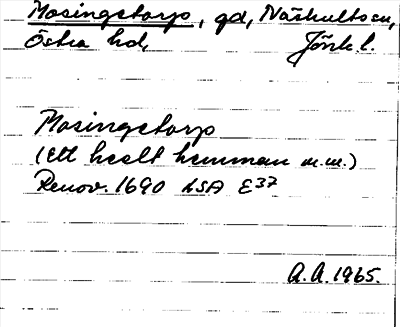 Mosingstorp, gd, Näshults sn,
Östra hd, Jönk. l.
Mosingstorp
(Ett heelt hemman m.m.)
Renov. 1690 LSA E37
A.A. 1965.